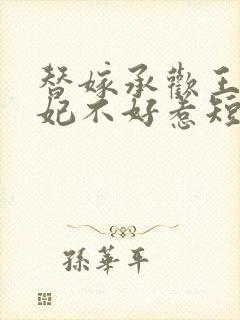 替嫁承歡王
妃不好惹短
孫華平